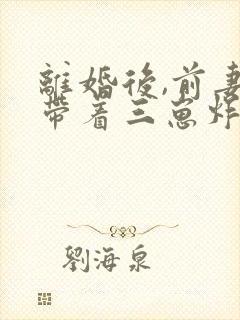 離婚後,前妻
帶着三崽炸
劉海泉